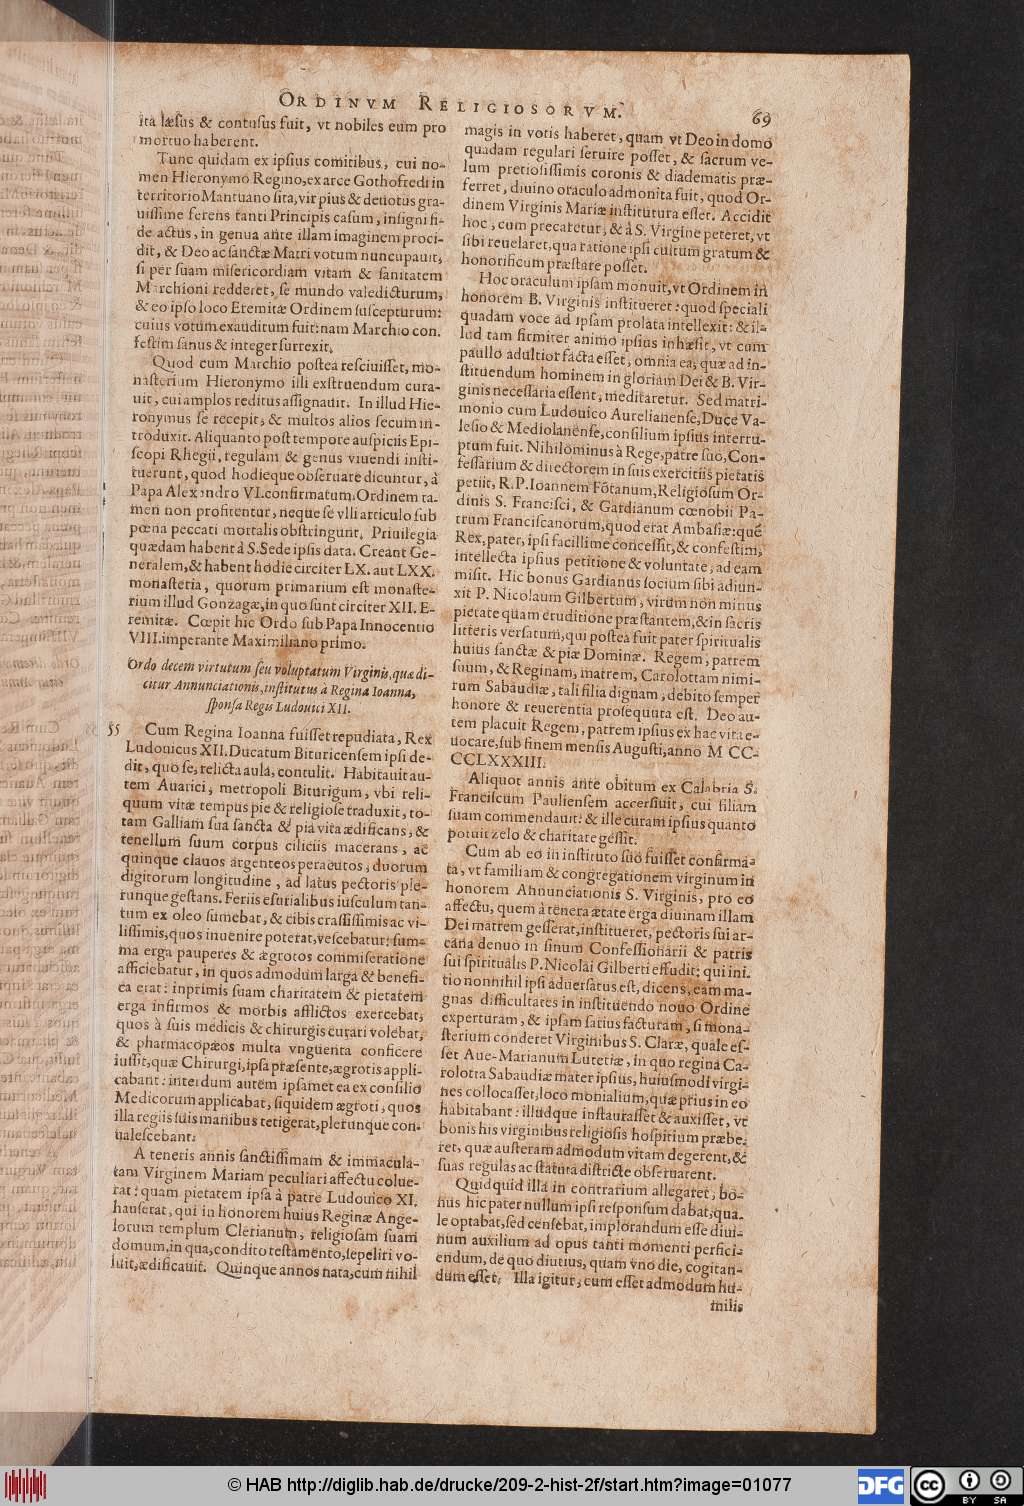 ORDINVM RELIGIOSORVM.
69
ita læsus & contusus fuit, vt nobiles eum pro
mortuo haberent.
Tunc quidam ex ipsius comitibus, cui no-
men Hieronymo Regino, ex arce Gothofredi in
territorio Mantuano sita, vir pius & deuotus gra-
uissime ferens tanti Principis casum, insigni fi-
de actus, in genua ante illam imaginem proci-
dit, & Deo ac sanctæ Matri votum nuncupauit,
si per suam misericordiam vitam & sanitatem
Marchioni redderet, se mundo valedicturum,
& eo ipso loco Eremitæ Ordinem suscepturum:
cuius votum exauditum fuit: nam Marchio con-
festim sanus & integer surrexit.
Quod cum Marchio postea resciuisset, mo-
nasterium Hieronymo illi exstruendum cura-
uit, cui amplos reditus assignauit. In illud Hie-
ronymus se recepit, & multos alios secum in-
troduxit. Aliquanto post tempore auspiciis Epi-
scopi Rhegii, regulam & genus viuendi insti-
tuerunt, quod hodieque obseruare dicuntur, à
Papa Alexandro VI. confirmatum. Ordinem ta-
men non profitentur, neque se vlli articulo sub
pœna peccati mortalis obstringunt. Priuilegia
quædam habent à S. Sede ipsis data. Creant Ge-
neralem, & habent hodie circiter LX. aut LXX.
monasteria, quorum primarium est monaste-
rium illud Gonzagæ, in quo sunt circiter XII. E-
remitæ. Cœpit hic Ordo sub Papa Innocentio
VIII. imperante Maximiliano primo.
Ordo decem virtutum seu voluptatum Virginis, quæ di-
citur Annunciationis, institutus à Regina Ioanna,
sponsa Regis Ludouici XII.
55 Cum Regina Ioanna fuisset repudiata, Rex
Ludouicus XII. Ducatum Bituricensem ipsi de-
dit, quo se, relicta aula, contulit. Habitauit au-
tem Auarici, metropoli Biturigum, vbi reli-
quum vitæ tempus pie & religiose traduxit, to-
tam Galliam sua sancta & pia vita ædificans, &
tenellum suum corpus ciliciis macerans, ac
quinque clauos argenteos peracutos, duorum
digitorum longitudine, ad latus pectoris ple-
runque gestans. Feriis esurialibus iusculum tan-
tum ex oleo sumebat, & cibis crassissimis ac vi-
lissimis, quos inuenire poterat, vescebatur: sum-
ma erga pauperes & ægrotos commiseratione
afficiebatur, in quos admodum larga & benefi-
ca erat: inprimis suam charitatem & pietatem
erga infirmos & morbis afflictos exercebat,
quos à suis medicis & chirurgis curari volebat,
& pharmacopæos multa vnguenta conficere
iussit, quæ Chirurgi, ipsa præsente, ægrotis appli-
cabant: interdum autem ipsamet ea ex consilio
Medicorum applicabat, siquidem ægroti, quos
illa regiis suis manibus tetigerat, plerunque con-
ualescebant.
A teneris annis sanctissimam & immacula-
tam Virginem Mariam peculiari affectu colue-
rat: quam pietatem ipsa à patre Ludouico XI.
hauserat, qui in honorem huius Reginæ Ange-
lorum templum Clerianum, religiosam suam
domum, in qua, condito testamento, sepeliri vo-
luit, ædificauit. Quinque annos nata, cum nihil
magis in votis haberet, quam vt Deo in domo
quadam regulari seruire posset, & sacrum ve-
lum pretiosissimis coronis & diadematis præ-
ferret, diuino oraculo admonita fuit, quod Or-
dinem Virginis Mariæ institutura esset. Accidit
hoc, cum precaretur, & à S. Virgine peteret, vt
sibi reuelaret, qua ratione ipsi cultum gratum &
honorificum præstare posset.
Hoc oraculum ipsam monuit, vt Ordinem in
honorem B. Virginis institueret: quod speciali
quadam voce ad ipsam prolata intellexit: & il-
lud tam firmiter animo ipsius inhæsit, vt cum
paullo adultior facta esset, omnia ea, quæ ad in-
stituendum hominem in gloriam Dei & B. Vir-
ginis necessaria essent, meditaretur. Sed matri-
monio cum Ludouico Aurelianense, Duce Va-
lesio & Mediolanense, consilium ipsius interru-
ptum fuit. Nihilominus à Rege, patre suo, Con-
fessarium & directorem in suis exercitiis pietatis
petiit, R. P. Ioannem Fõtanum, Religiosum Or-
dinis S. Francisci, & Gardianum cœnobii Pa-
trum Franciscanorum, quod erat Ambasiæ: quẽ
Rex, pater, ipsi facillime concessit, & confestim,
intellecta ipsius petitione & voluntate, ad eam
misit. Hic bonus Gardianus socium sibi adiun-
xit P. Nicolaum Gilbertum, virum non minus
pietate quam eruditione præstantem, & in sacris
litteris versatum, qui postea fuit pater spiritualis
huius sanctæ & piæ Dominæ. Regem, patrem
suum, & Reginam, matrem, Carolottam nimi-
rum Sabaudiæ, tali filia dignam, debito semper
honore & reuerentia prosequuta est. Deo au-
tem placuit Regem, patrem ipsius ex hac vita e-
uocare, sub finem mensis Augusti, anno M CC-
CCLXXXIII.
Aliquot annis ante obitum ex Calabria S.
Franciscum Pauliensem accersiuit, cui filiam
suam commendauit: & ille curam ipsius quanto
potuit zelo & charitate gessit.
Cum ab eo in instituto suo fuisset confirma-
ta, vt familiam & congregationem virginum in
honorem Annunciationis S. Virginis, pro eo
affectu, quem à tenera ætate erga diuinam illam
Dei matrem gesserat, institueret, pectoris sui ar-
cana denuo in sinum Confessionarii & patris
sui spiritualis P. Nicolai Gilberti effudit: qui ini-
tio nonnihil ipsi aduersatus est, dicens, eam ma-
gnas difficultates in instituendo nouo Ordine
experturam, & ipsam satius facturam, si mona-
sterium conderet Virginibus S. Claræ, quale es-
set Aue-Marianum Lutetiæ, in quo regina Ca-
rolotta Sabaudiæ mater ipsius, huiusmodi virgi-
nes collocasset, loco monialium, quæ prius in eo
habitabant: illudque instaurasset & auxisset, vt
bonis his virginibus religiosis hospitium præbe-
ret, quæ austeram admodum vitam degerent, &
suas regulas ac statuta districte obseruarent.
Quidquid illa in contrarium allegaret, bo-
nus hic pater nullum ipsi responsum dabat, qua-
le optabat, sed censebat, implorandum esse diui-
num auxilium ad opus tanti momenti perfici-
endum, de quo diutius, quam vno die, cogitan-
dum esset. Illa igitur, cum esset admodum hu-
milis
© HAB http://diglib.hab.de/drucke/209-2-hist-2f/start.htm?image=01077
DFG
cc
BY SA